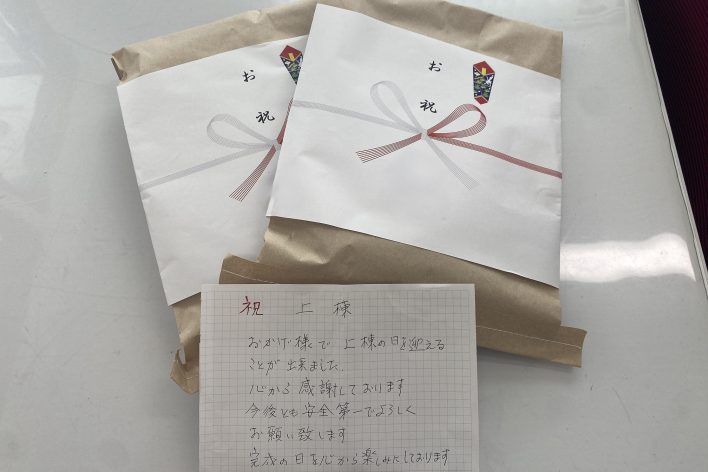 お祝
お祝
祝 上棟
おかげ様で 上棟の日を迎える
ことが出来ました.
心から感謝しております
今後とも安全第一でよろしく
お願い致します
完成の日を心から楽しみにしております